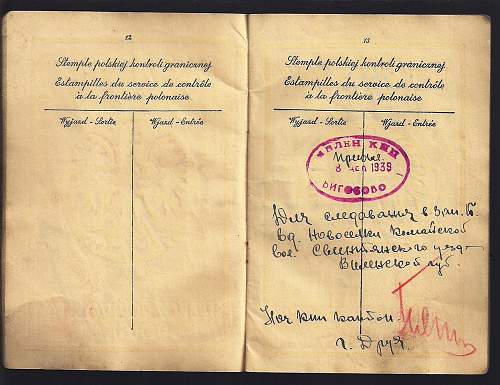 12
Stemple polskiej kontroli granicznej
Estampilles du service de contrôle
à la frontière polonaise
Wyjazd - Sortie
Wjazd - Entrée
13
Stemple polskiej kontroli granicznej
Estampilles du service de contrôle
à la frontière polonaise
Wyjazd - Sortie
Wjazd - Entrée
ЧЛЕН КПП
8 1939
БИГОСОВО
Для следования в Зап. Б.
вд. Новоселки Комайской
вол. Свентянского уезд.
Виленской губ.
Нач кпп
г. Друя.